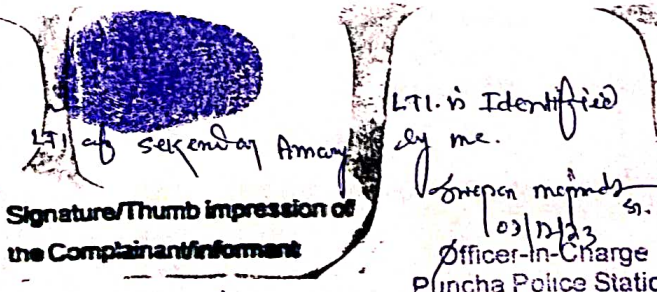 LTI of Sekendar Ansary
Signature/Thumb impression of
the Complainant/informant
LTI. is Identified
by me.
Swapan
03/12/23
Officer-in-Charge
Puncha Police Statio